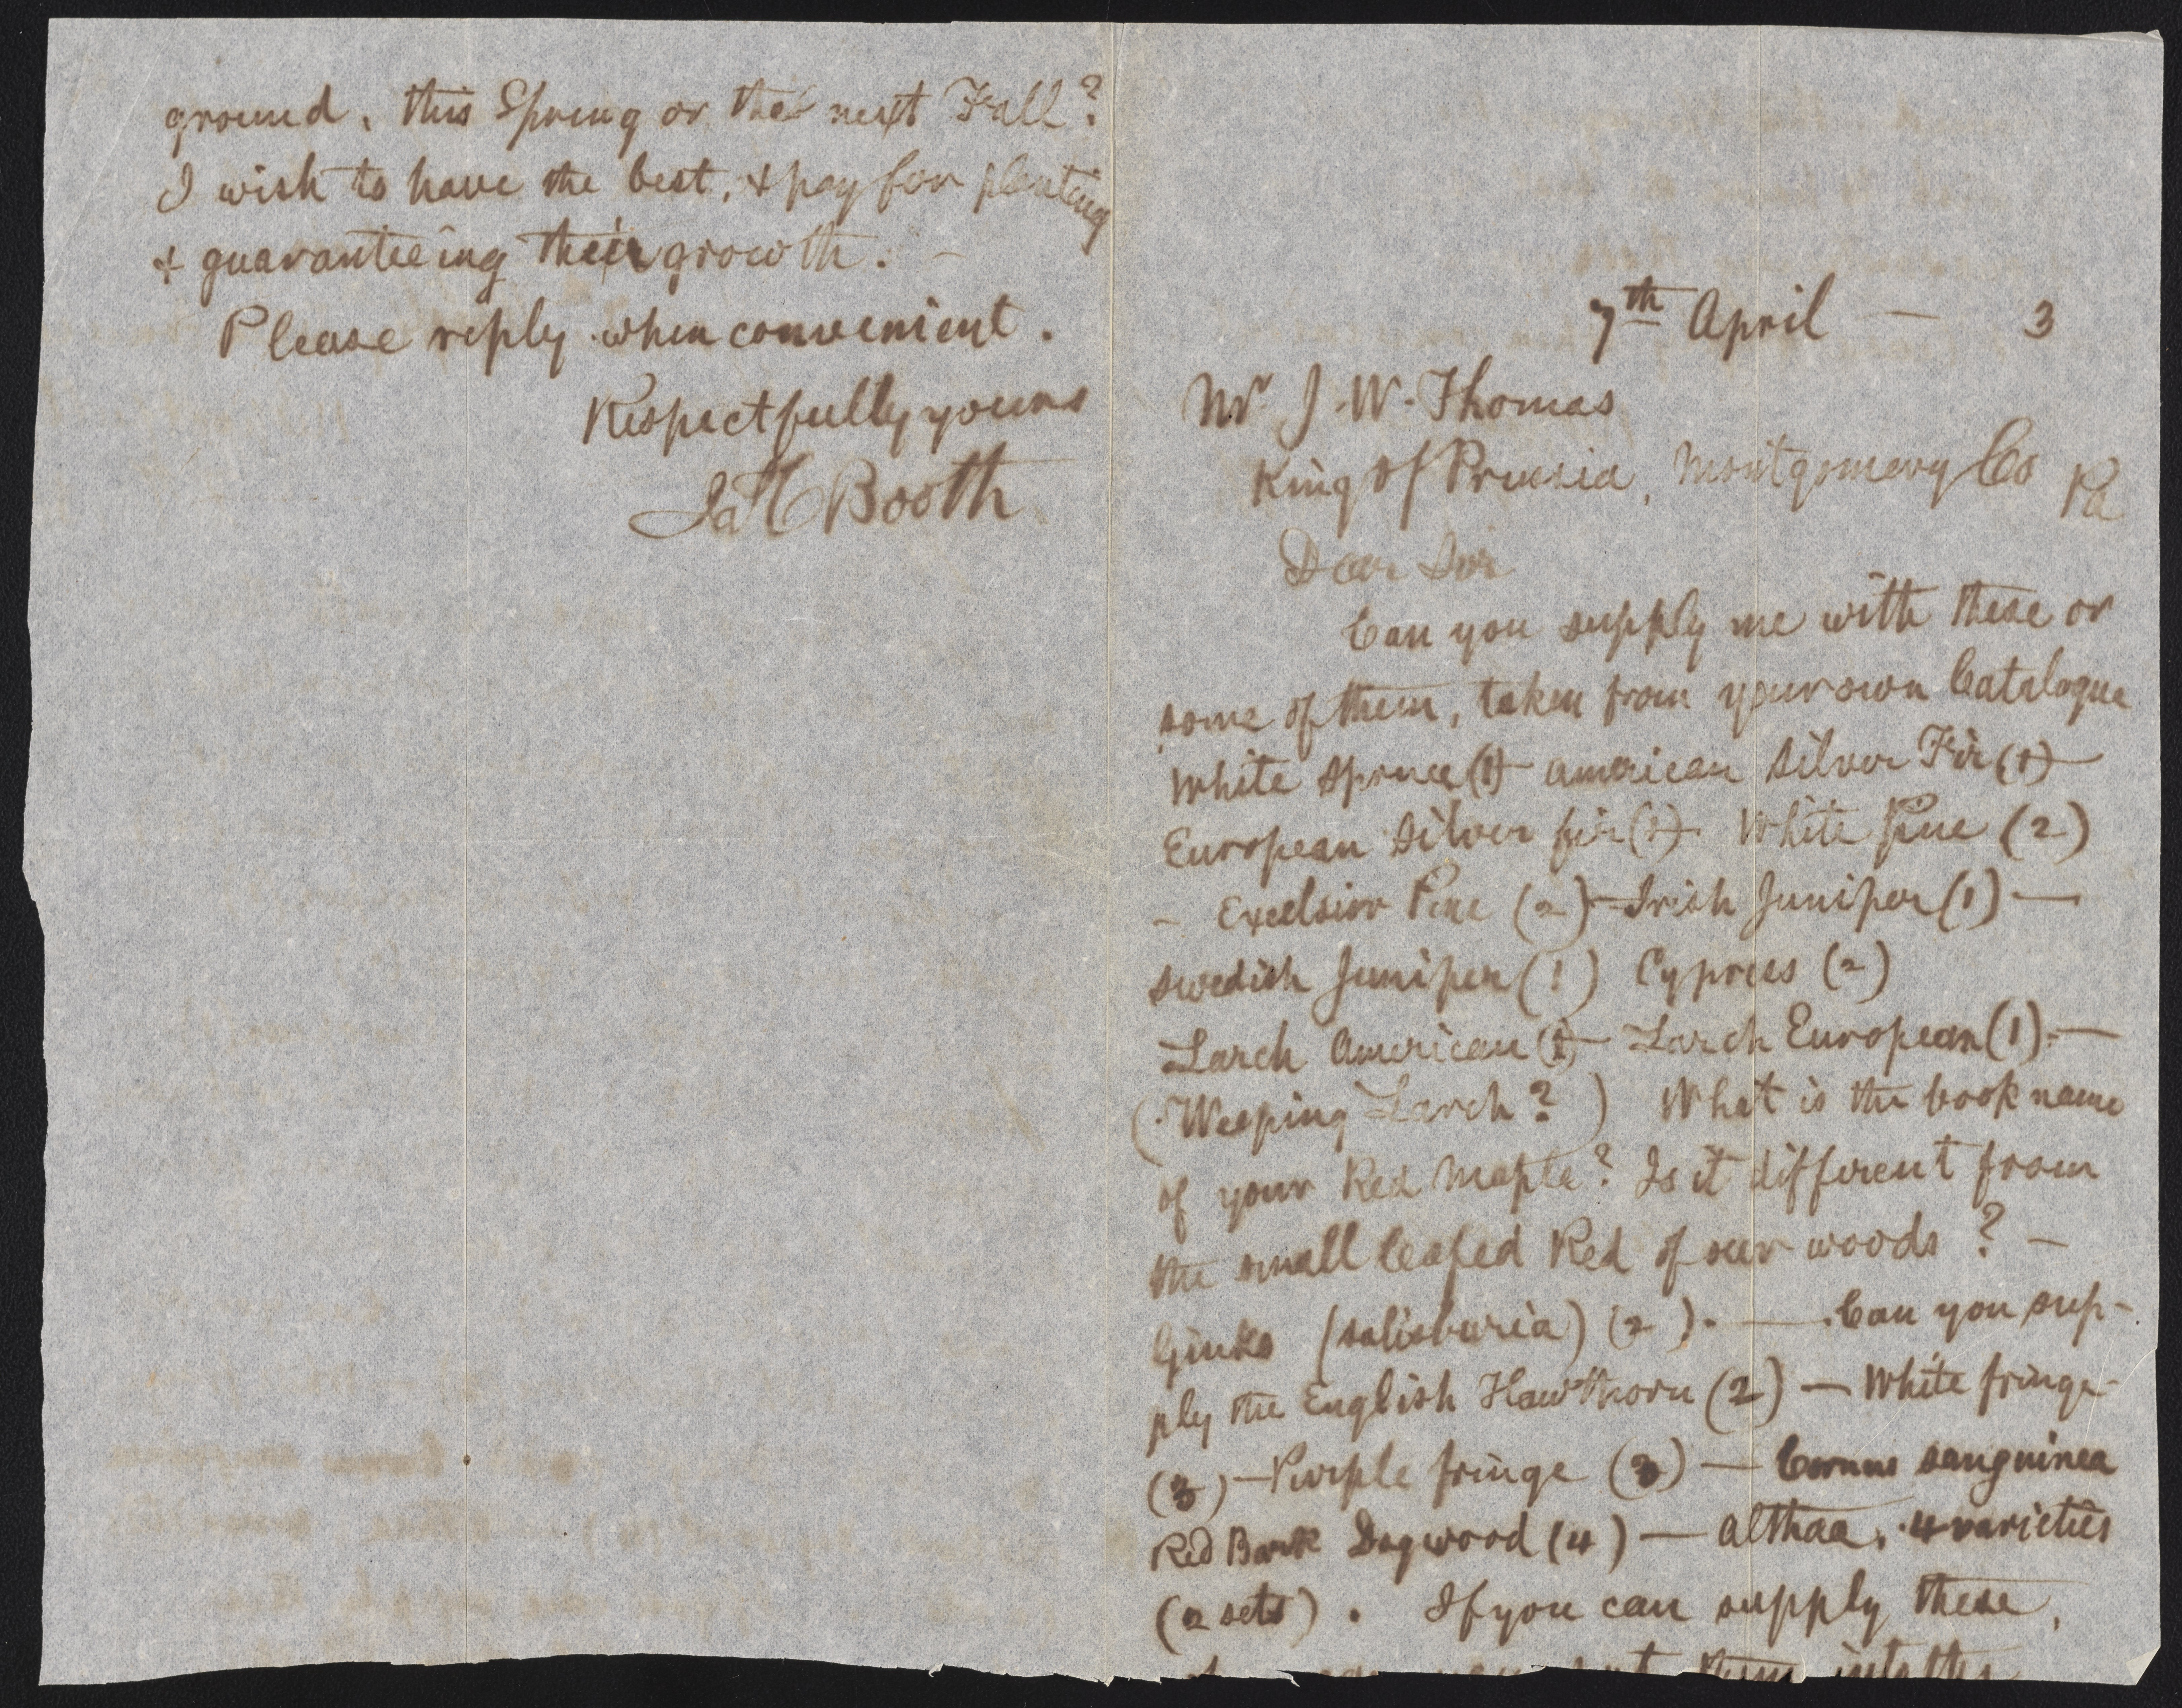 7th April — 3
Mr J. W. Thomas
King of Prussia, Montgomery Co Pa
Dear Sir
Can you supply me with these or
some of them, taken from your own Catalogue
White Spruce (1) — American Silver Fir (1) —
European Silver fir (1) — White Pine (2)
— Excelsior Pine (2) — Irish Juniper (1) —
Swedish Juniper (1) Cypress (2)
Larch American (1) — Larch European (1). —
(Weeping Larch?) What is the book name
of your Red Maple? Is it different from
the small leafed Red of our woods? —
Ginko (Salisburia) (2). — Can you sup-
ply the English Hawthorn (2) — White fringe
(3) — Purple fringe (3) — Cornus sanguinea
Red Bark Dogwood (4) — Althaa, 4 varieties
(2 sets). If you can supply these,
ground, this Spring or the next Fall?
I wish to have the best, & pay for planting
& guaranteeing their growth. —
Please reply when convenient.
Respectfully yours
Jas C Booth